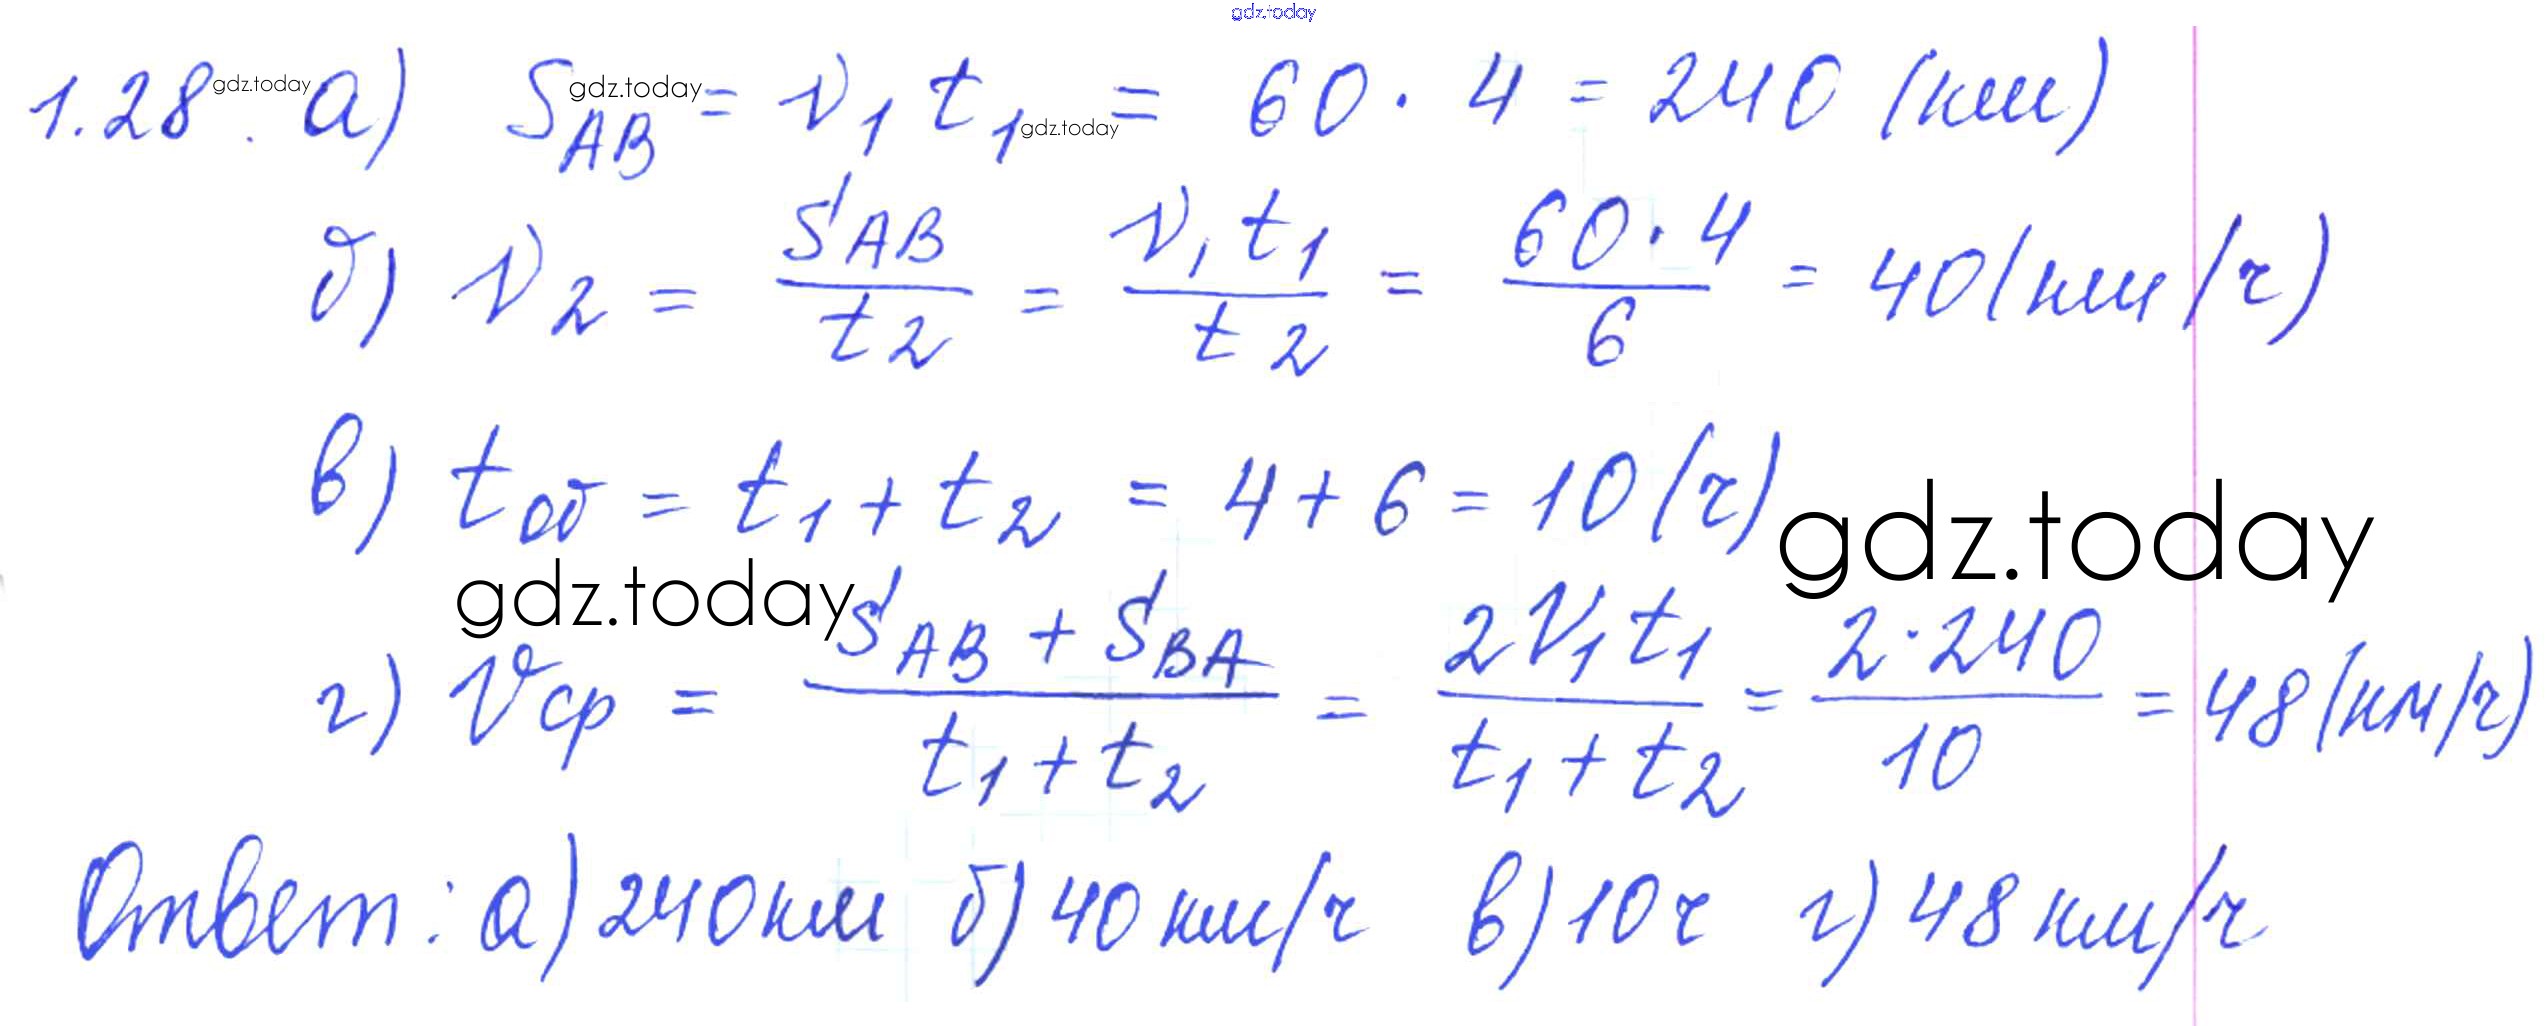 gdz.today
1.28. gdz.today а) S_AB gdz.today = v₁ t₁ gdz.today = 60 · 4 = 240 (км)
б) v₂ = S_AB / t₂ = v₁ t₁ / t₂ = 60 · 4 / 6 = 40 (км/ч)
в) t_об = t₁ + t₂ = 4 + 6 = 10 (ч) gdz.today
gdz.today
г) v_ср = (S_AB + S_BA) / (t₁ + t₂) = 2 v₁ t₁ / (t₁ + t₂) = 2 · 240 / 10 = 48 (км/ч)
Ответ: а) 240 км б) 40 км/ч в) 10 ч г) 48 км/ч